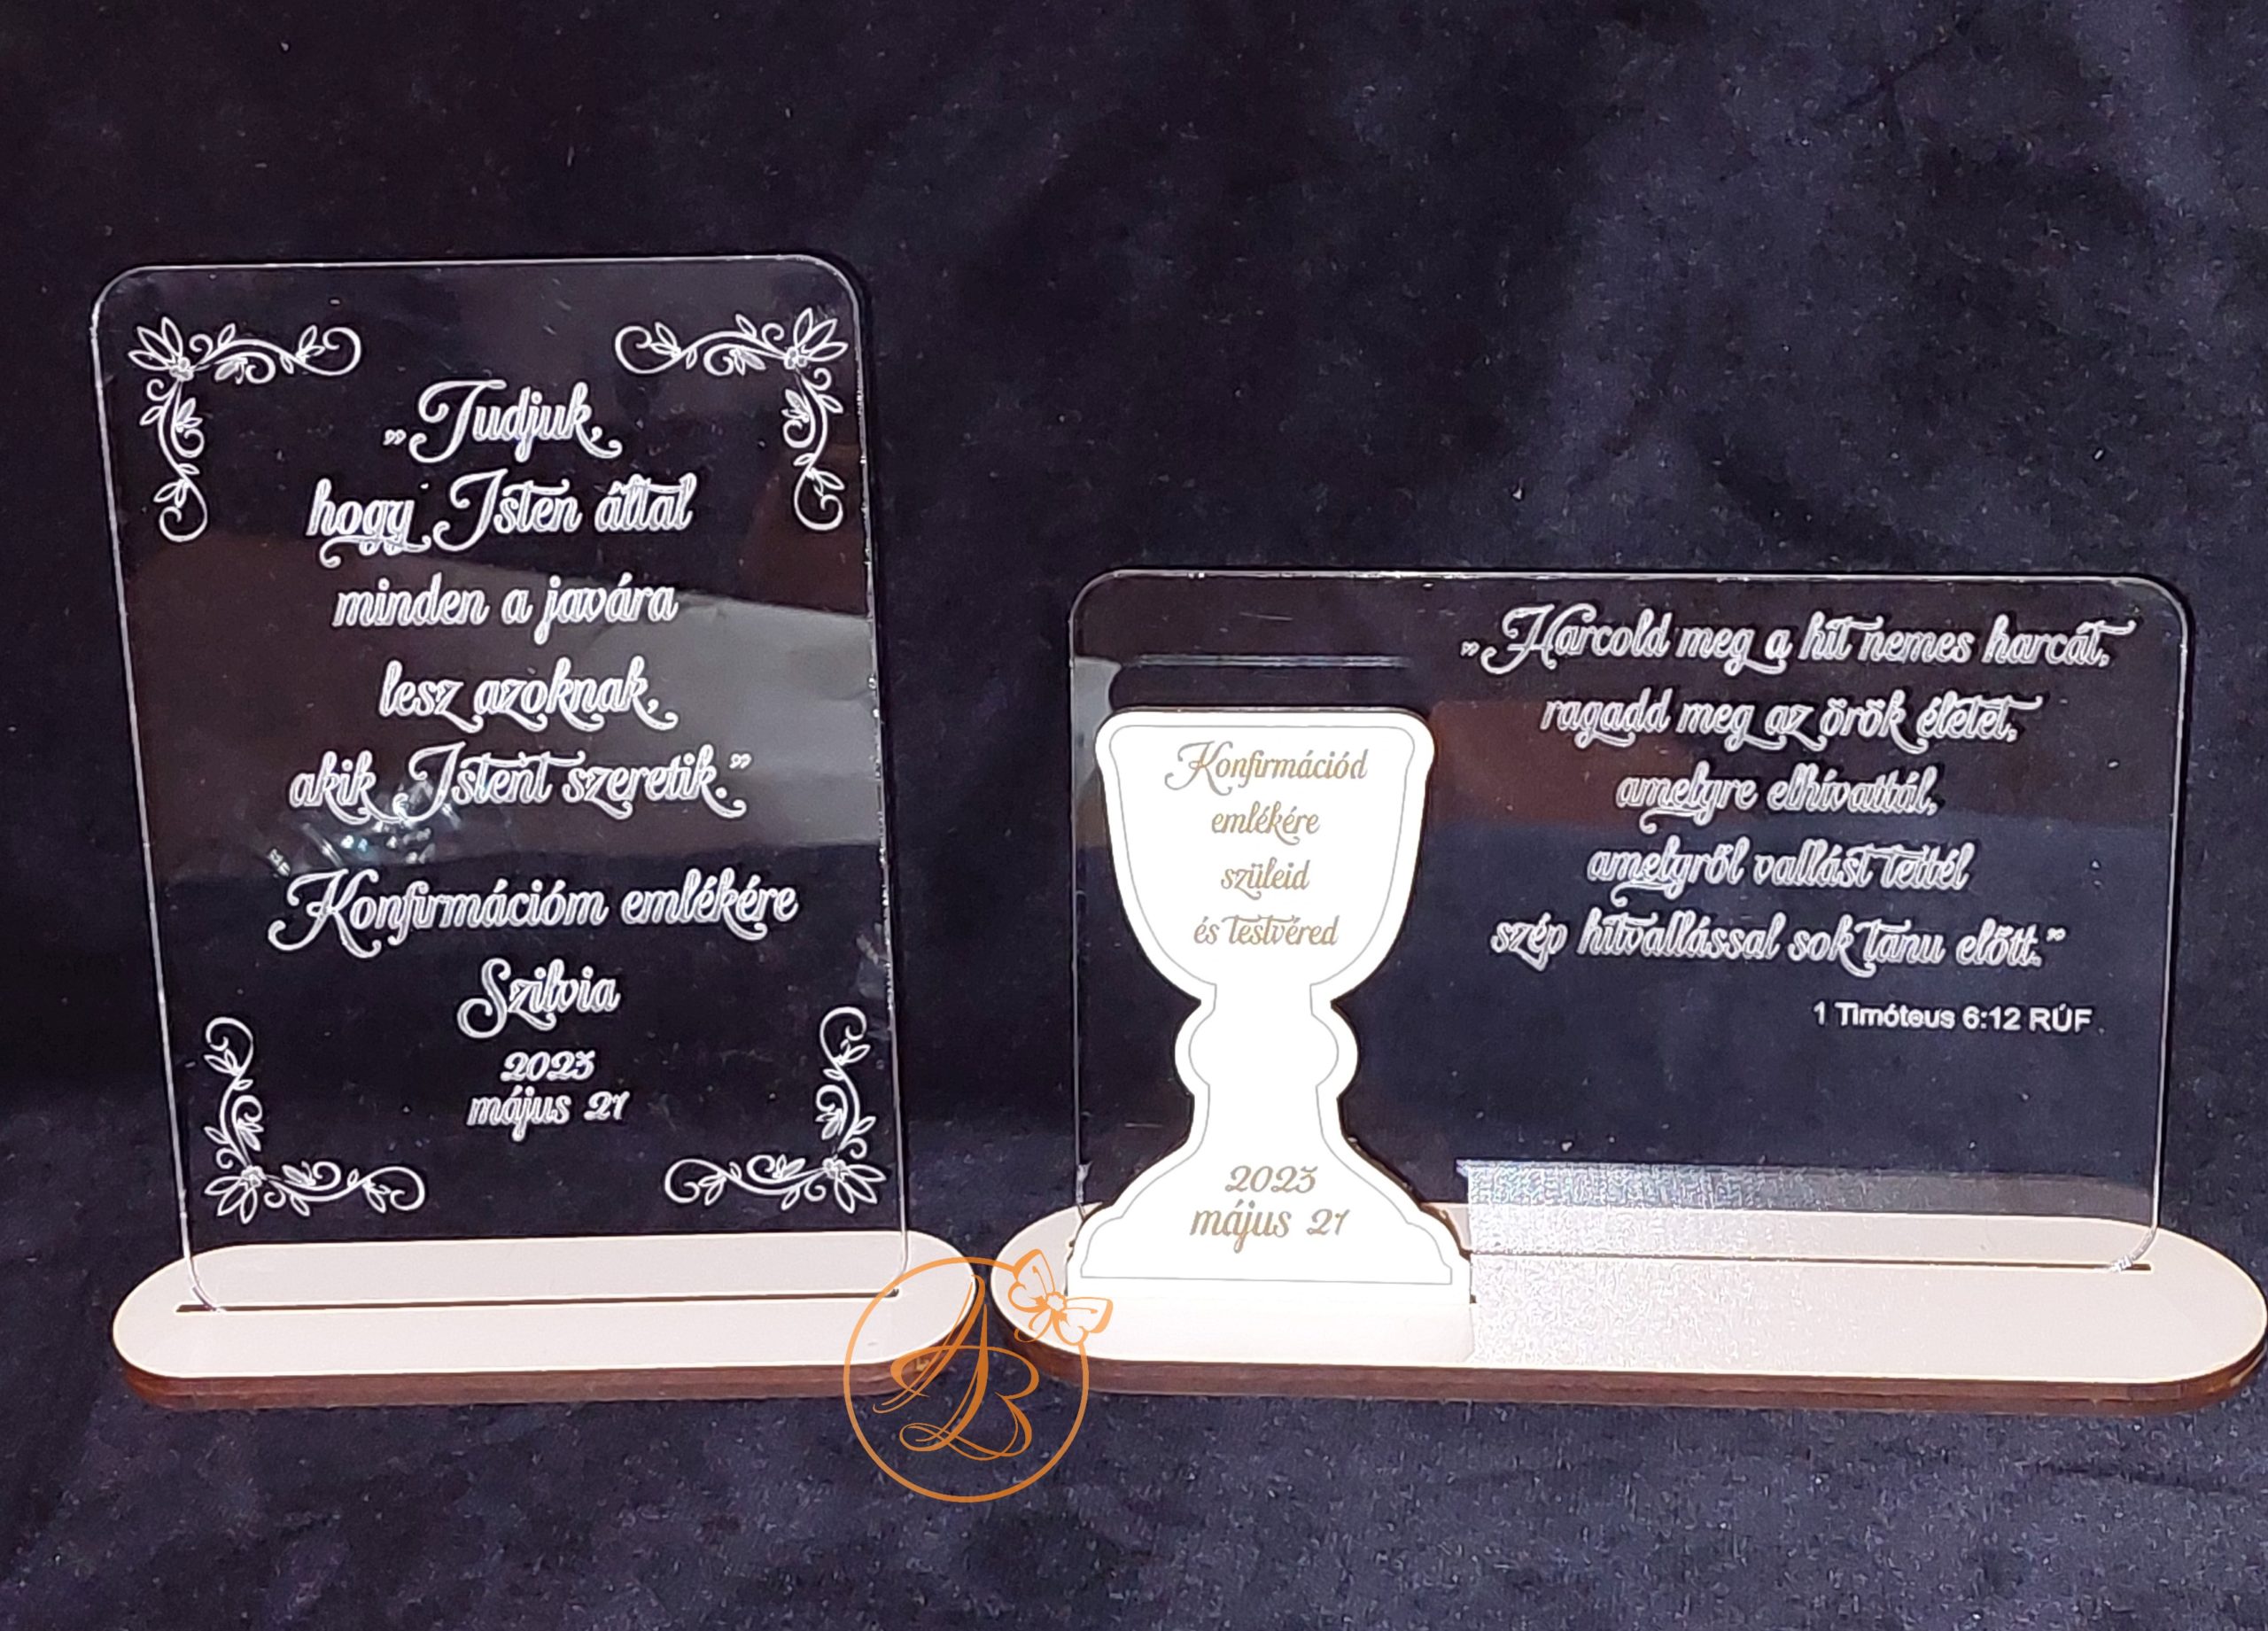 „Tudjuk,
hogy Isten által
minden a javára
lesz azoknak,
akik Istent szeretik.”
Konfirmációm emlékére
Szilvia
2023
május 21
Konfirmációd
emlékére
szüleid
és testvéred
2023
május 21
„Harcold meg a hit nemes harcát,
ragadd meg az örök életet,
amelyre elhívattál,
amelyről vallást tettél
szép hitvallással sok tanu előtt.”
1 Timóteus 6:12 RÚF
AB